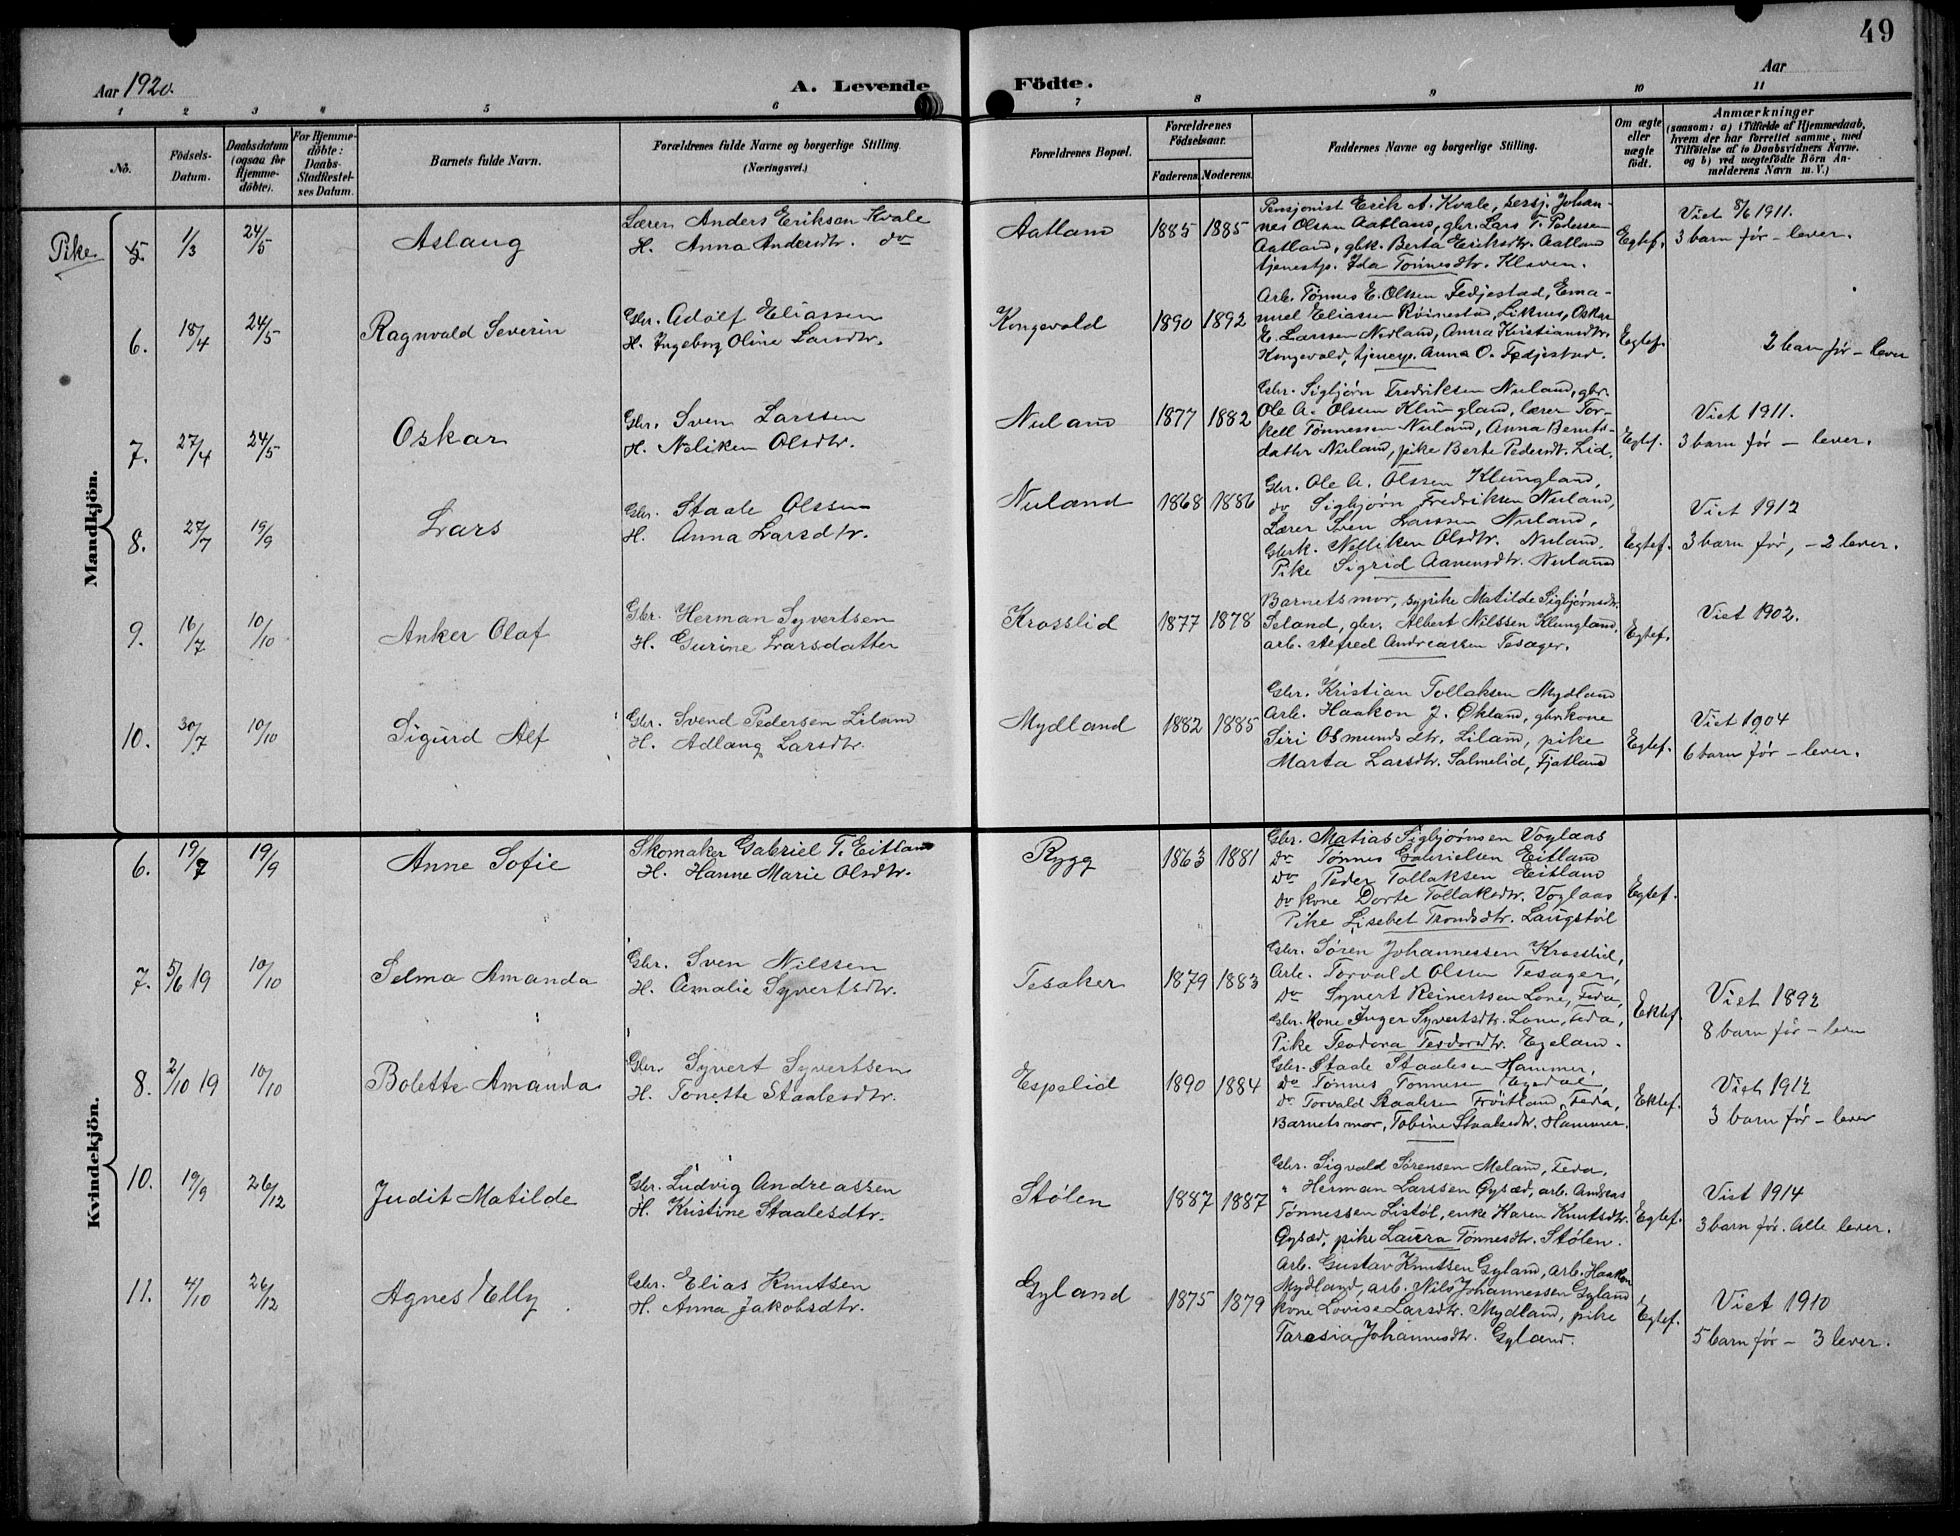 49
Aar 1920.
A. Levende Födte.
Aar
1 2 3 4 5 6 7 8 9 10 11
No.
Födsels-Datum.
Daabsdatum (ogsaa for Hjemme-döbte).
For Hjemme-döbte: Daabs-Stadfæstel-ses Datum.
Barnets fulde Navn.
Forældrenes fulde Navne og borgerlige Stilling.
(Næringsvei.)
Forældrenes Bopæl.
Forældrenes Födselsaar.
Faderens. Moderens.
Faddernes Navne og borgerlige Stilling.
Om ægte eller uægte født.
Anmærkninger
(saasom: a) i Tilfælde af Hjemmedaab, hvem der har forrettet samme, med Tilföielse af to Daabsvidners Navne. og b) ved uægtefödte Börn An-melderens Navn m. V.)
Mandkjön.
Pike 5 1/3 24/5 Aslaug
Lærer Anders Eriksen Kvale
H. Anna Andersdtr. do
Aatland 1885 1885
Pensjonist Erik A. Kvale, sersj. Johan-
nes Olsen Aatland, gbr. Lars T. Pedersen
Aatland, gbk. Berta Eriksdtr. Aatland
tjenestp. Ida Tønnesdtr. Kleven.
Egtef.
Viet 8/6 1911.
3 barn før – lever.
6. 18/4 24/5 Ragnvald Severin
Gbr. Adolf Eliassen
H. Ingeborg Oline Larsdtr.
Kongevold 1890 1892
Arb. Tønnes E. Olsen Fedjestad, Ema-
nuel Eliassen Røinestad, Liknes, Oskar
E. Larssen Nuland, Anna Kristiansdtr.
Kongevald, tjenep. Anna O. Fedjestad.
Egtef.
2 barn før – lever
7. 27/4 24/5 Oskar
Gbr. Sven Larssen
H. Neliken Olsdtr.
Nuland 1877 1882
Gbr. Sigbjørn Fredriksen Nuland, gbr.
Ole A. Olssen Klungland, lærer Tor-
kell Tønnessen Nuland, Anna Bernts-
datter Nuland, pike Berte Pedersdt. Lid.
Egtef.
Viet 1911.
3 barn før – lever.
8. 27/7 19/9 Lars
Gbr. Staale Olssen
H. Anna Larsdtr.
Nuland 1868 1886
Gbr. Ole A. Olssen Klungland,
do Sigbjørn Fredriksen Nuland,
Lærer Sven Larssen Nuland,
Gbrk. Nelliken Olsdtr. Nuland,
Pike Sigrid Aanensdtr. Nuland
Egtef.
Viet 1912
3 barn før, – 2 lever.
9. 16/7 10/10 Anker Olaf
Gbr. Herman Syvertsen
H. Gurine Larsdatter
Krosslid 1877 1878
Barnets mor, sypike Matilde Sigbjørnsdtr.
Seland, gbr. Albert Nilssen Klungland,
arb. Alfred Andreassen Tesager.
Egtef.
Viet 1902.
10. 30/7 10/10 Sigurd Alf
Gbr. Svend Pedersen Liland
H. Adlaug Larsdtr.
Mydland 1882 1885
Gbr. Kristian Tollaksen Mydland
Arb. Haakon J. Økland, gbr. kone
Siri Osmundsdtr. Liland, pike
Marta Larsdtr. Salmelid, Fjotland
Egtef.
Viet 1904
6 barn før – lever.
Kvindekjön.
6. 19/7 19/9 Anne Sofie
Skomaker Gabriel T. Eitland
H. Hanne Marie Olsdtr.
Rygg 1863 1881
Gbr. Matias Sigbjørnsen Voglaas
do Tønnes Gabrielsen Eitland
do Peder Tollaksen Eitland
do kone Dorte Tollaksdtr. Voglaas
Pike Lisebet Trondsdtr. Laugstøl
Egtef.
7. 5/6 19 10/10 Selma Amanda
Gbr. Sven Nilssen
H. Amalie Syvertsdtr.
Tesaker 1879 1883
Gbr. Søren Johannessen Krosslid,
Arb. Torvald Olsen Tesager,
do Syvert Reinertsen Lone, Feda,
Gbr. kone Inger Syvertsdtr. Lone, Feda,
Pike Teodora Teodorsdtr. Egeland.
Ektef.
Viet 1892
8 barn før – lever
8. 2/10 19 10/10 Bolette Amanda
Gbr. Syvert Syvertsen
H. Tonette Staalesdtr.
Espelid 1890 1884
Gbr. Staale Staalesen Hammer,
do Tønnes Tønnesen Egedal,
do Torvald Staalesen Frøitland, Feda,
Barnets mor, Tobine Staalesdtr. Hammer.
Ektef.
Viet 1912
3 barn før – lever
10. 19/9 26/12 Judit Matilde
Gbr. Ludvig Andreassen
H. Kristine Staalesdtr.
Stølen 1887 1887
Gbr. Sigvald Sørensen Meland, Feda,
" Herman Larssen Øysæd, arb. Andreas
Tønnessen Listøl, enke Karen Knutsdtr.
Øysæd, pike Laura Tønnesdtr. Stølen.
Egtef.
Vist 1914
3 barn før. Alle lever.
11. 4/10 26/12 Agnes Elly
Gbr. Elias Knutsen
H. Anna Jakobsdtr.
Gyland 1875 1879
Arb. Gustav Knutsen Gyland, arb. Haakon
Mydland, arb. Nils Johannessen Gyland
kone Lovise Larsdtr. Mydland, pike
Taresia Johannesdtr. Gyland.
Egtef.
Viet 1910
5 barn før – 3 lever.